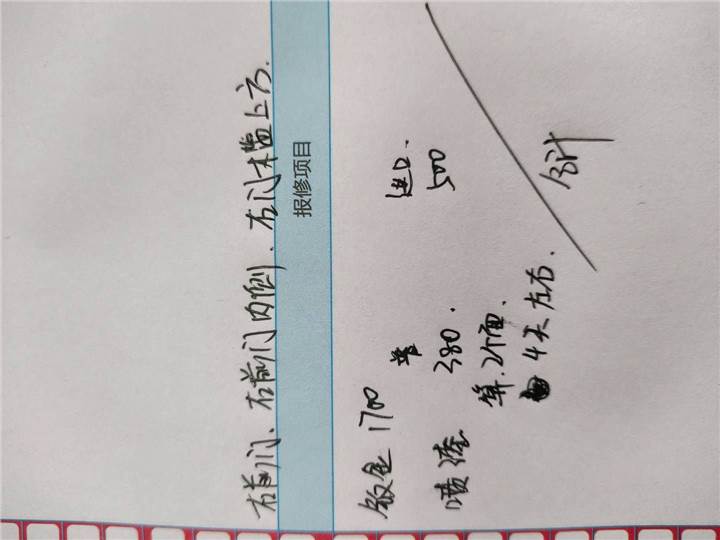 右前门、右前门内侧、右门木槛上方.
报修项目
钣金 1700
进口.
喷漆 380. 500
算.2个面.
4天左右.
合计